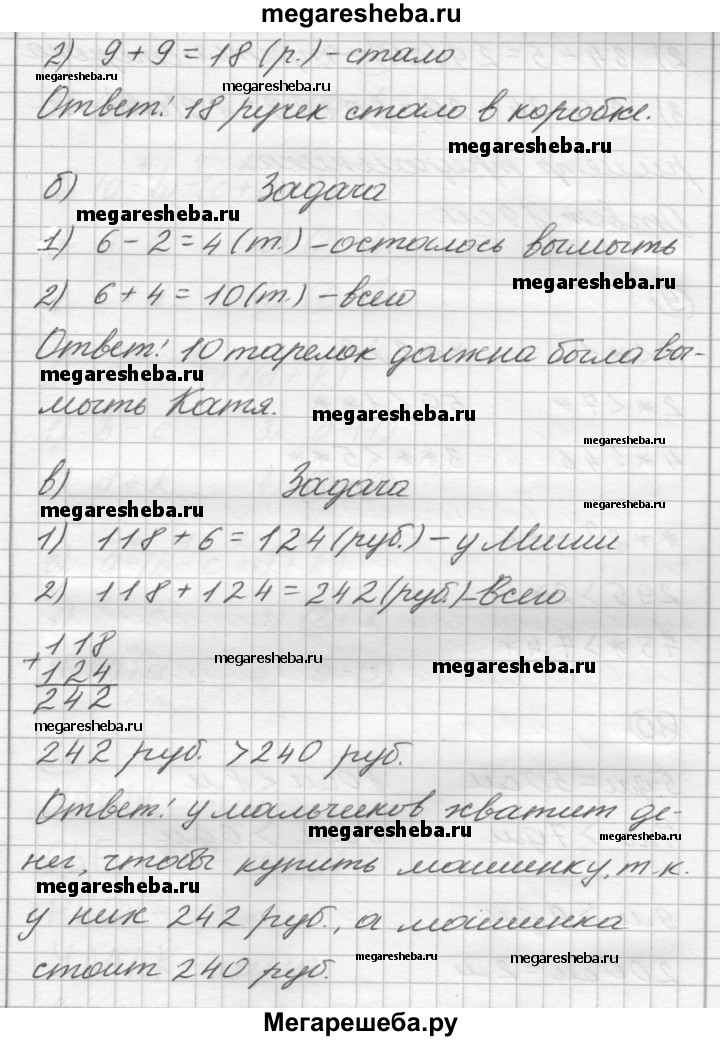 megaresheba.ru
2) 9 + 9 = 18 (р.) – стало
megaresheba.ru megaresheba.ru
Ответ: 18 ручек стало в коробке.
megaresheba.ru
б) Задача
megaresheba.ru
1) 6 – 2 = 4 (т.) – осталось вымыть
megaresheba.ru
2) 6 + 4 = 10 (т.) – всего
Ответ: 10 тарелок должна была вы-
megaresheba.ru
мыть Катя.
megaresheba.ru
megaresheba.ru
в) Задача
megaresheba.ru
megaresheba.ru
1) 118 + 6 = 124 (руб.) – у Миши
2) 118 + 124 = 242 (руб.) – Всего
118
+ 124
242
megaresheba.ru megaresheba.ru
megaresheba.ru
242 руб. > 240 руб.
Ответ: у мальчиков хватит де-
megaresheba.ru megaresheba.ru
нег, чтобы купить машинку, т.к.
megaresheba.ru
у них 242 руб., а машинка
стоит 240 руб.
megaresheba.ru megaresheba.ru
Мегарешеба.ру